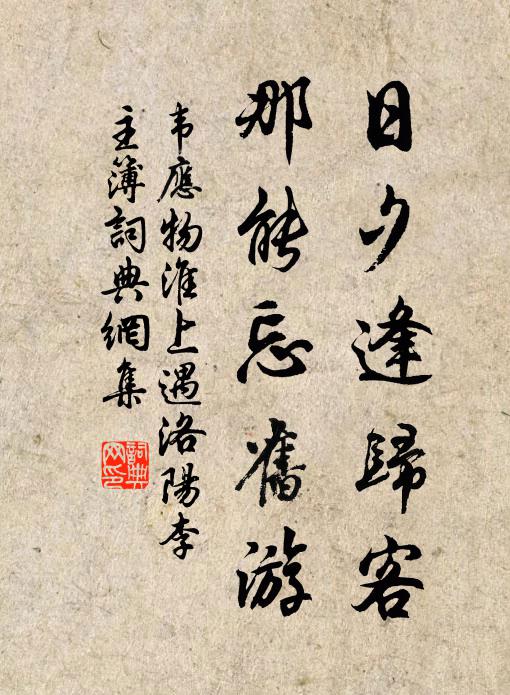 日夕逢歸客
那能忘舊游
韦應物淮上遇洛陽李
主簿詞典網集
詞典
网印